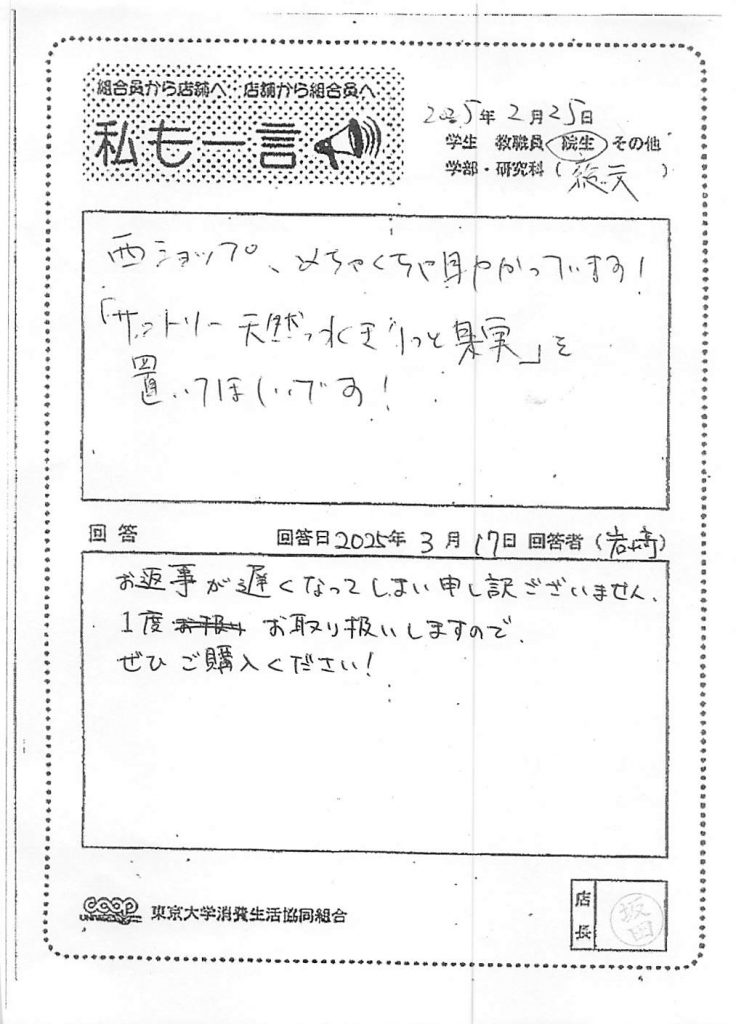 組合員から店舗へ 店舗から組合員へ
私も一言
2025年2月25日
学生 教職員 院生 その他
学部・研究科（総文）
西ショップ、めちゃくちゃ助かっています！
「サントリー天然水きりっと果実」を
置いてほしいです！
回答 回答日2025年3月17日 回答者（岩崎）
お返事が遅くなってしまい申し訳ございません。
1度 お取り扱いしますので、
ぜひご購入ください！
COOP
東京大学消費生活協同組合
店長
坂田